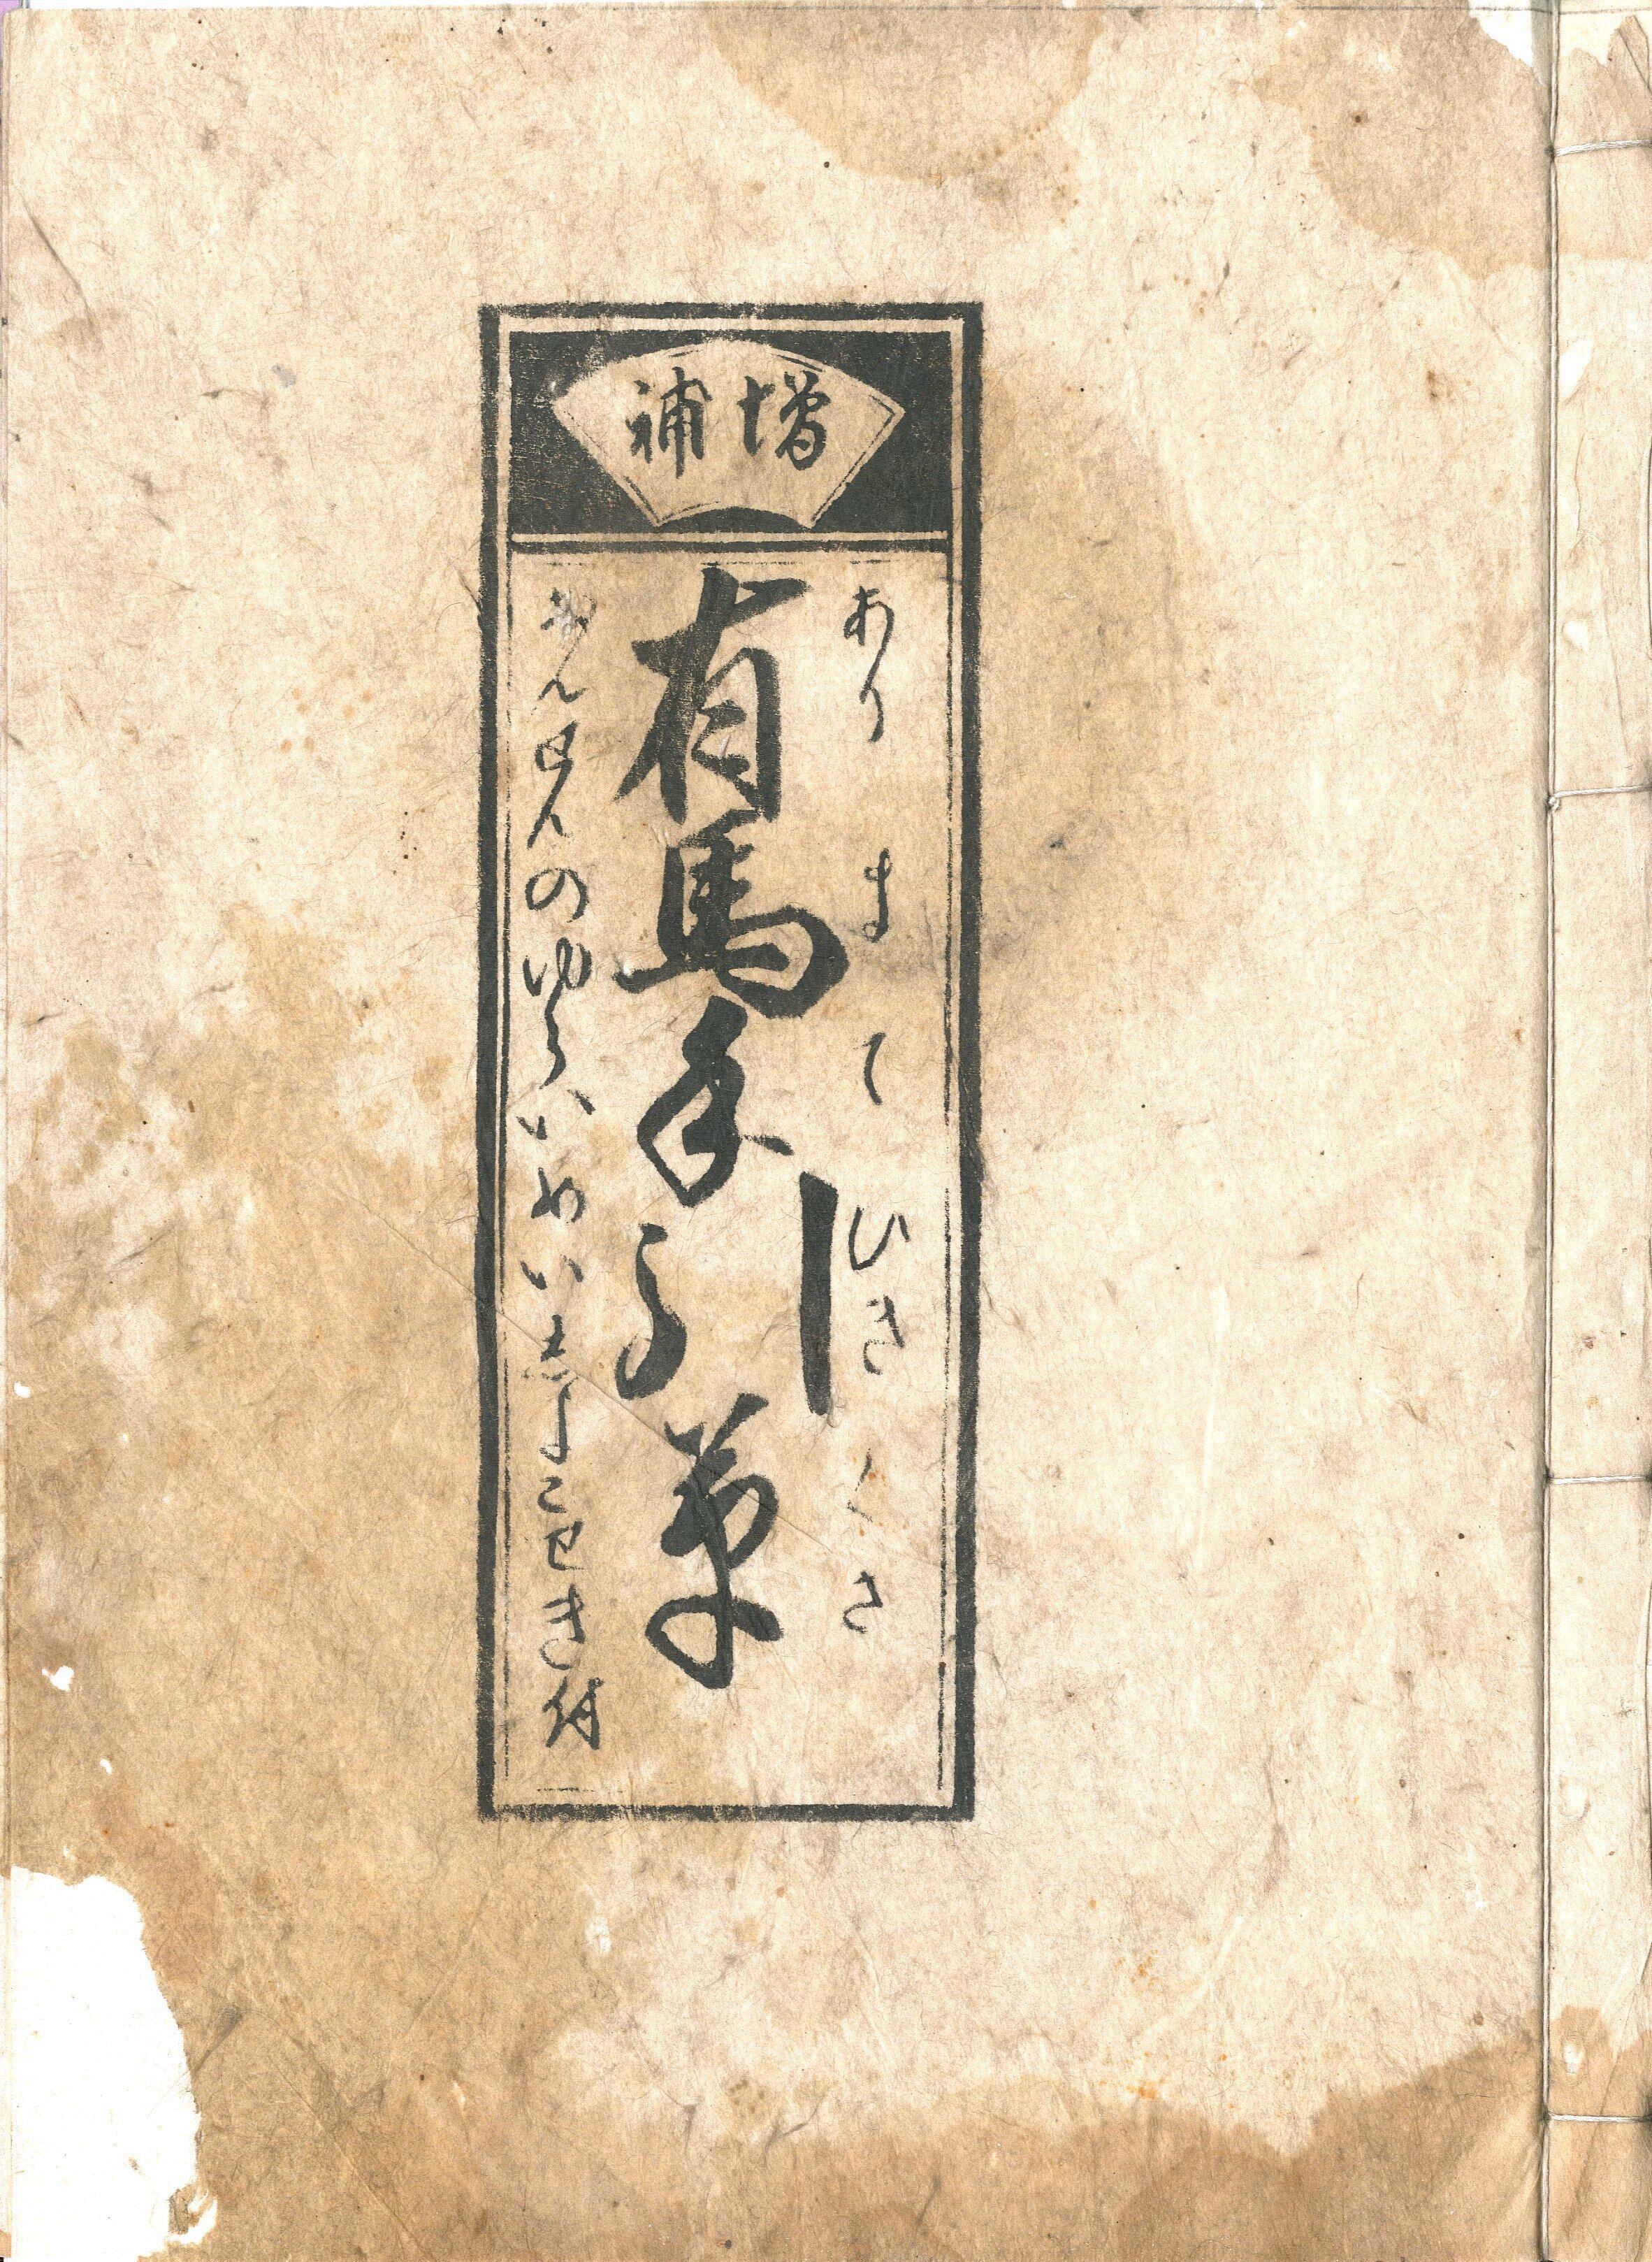 増補
ありまてひきくさ
有馬手引草
おんせんのゆらいめいしよこせき付